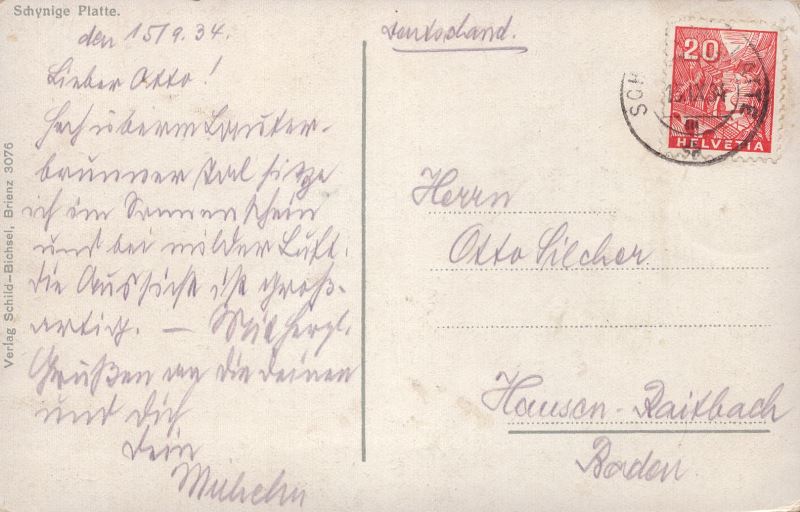 Schynige Platte.
den 15/9.34.
Lieber Otto!
Hoch überm Lauter-
brunner Tal sitze
ich im Sonnenschein
und bei milder Luft.
die Aussicht ist groß-
artig. — Mit herzl.
Grüßen an die deinen
und dich
dein
Wilhelm
Verlag Schild-Bichsel, Brienz 3076
Deutschland.
20
HELVETIA
Herrn
Otto Silcher.
Hausen-Raitbach
Baden.